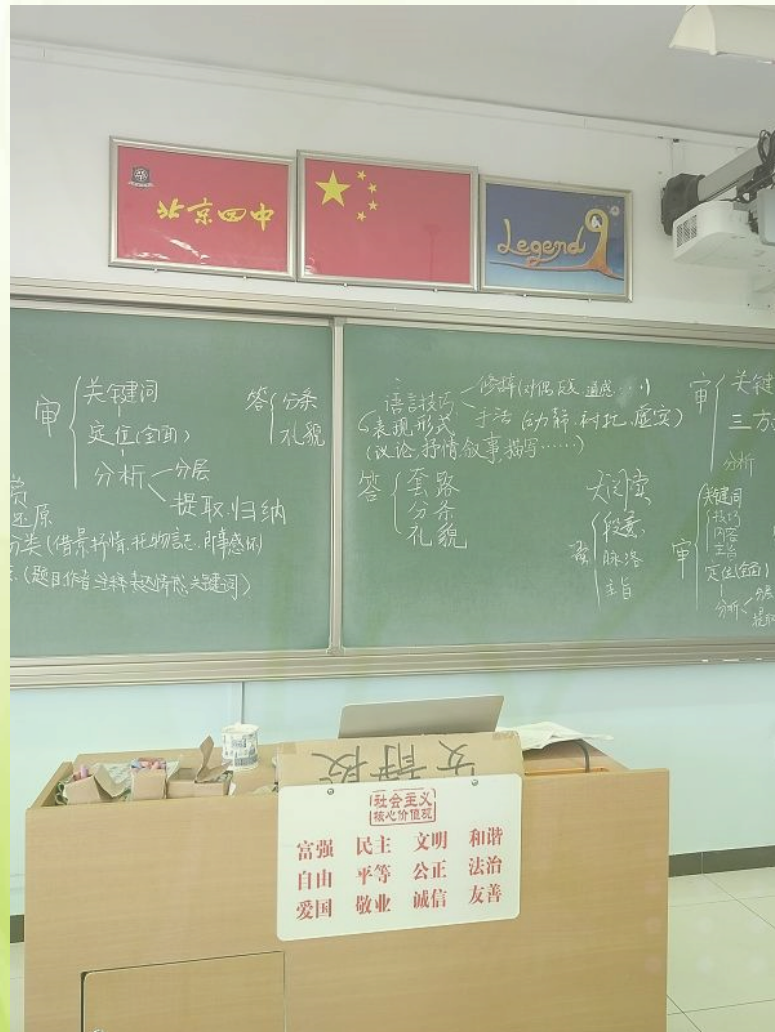 北京四中
Legend 9
审
关键词
定位(全面)
分析
分层
提取.归纳
答
分条
礼貌
还原
分类(借景抒情.托物言志.即事感怀)
(题目.作者.注释.表达情感.关键词)
语言技巧
修辞(对偶.反衬.通感…)
手法(动静.衬托.虚实)
表现形式
(议论.抒情.叙事.描写……)
答
套路
分条
礼貌
大阅读
段意
脉络
主旨
审
关键
三方
分析
审
关键词
技巧
内容
主旨
定位(全面)
分析
分层
提取
社会主义
核心价值观
富强 民主 文明 和谐
自由 平等 公正 法治
爱国 敬业 诚信 友善